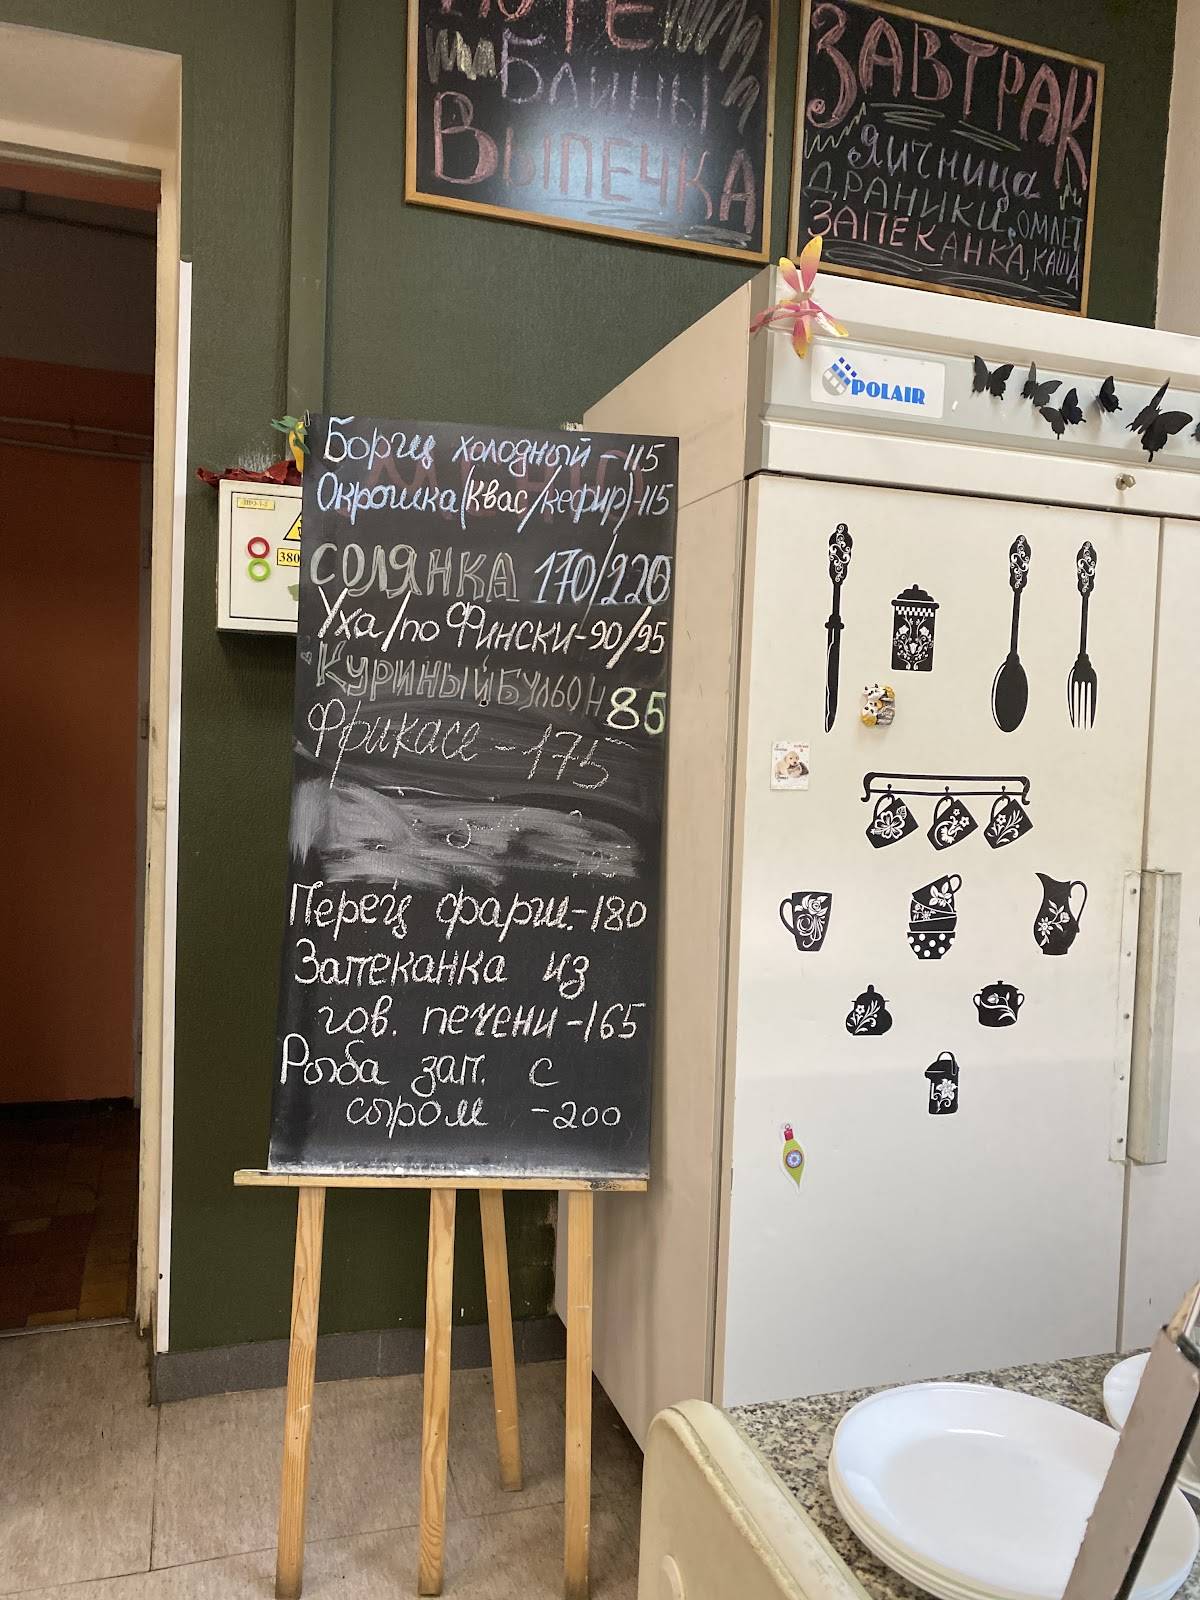 Блины
Выпечка
ЗАВТРАК
Яичница
ДРАНИКИ, ОМЛЕТ,
ЗАПЕКАНКА, КАША
POLAIR
Борщ холодный - 115
Окрошка (квас/кефир) - 115
СОЛЯНКА 170/220
Уха/по Фински - 90/95
Куриный бульон 85
Фрикасе - 175
Перец фарш. - 180
Запеканка из
гов. печени - 165
Рыба зап. с
сыром - 200
380